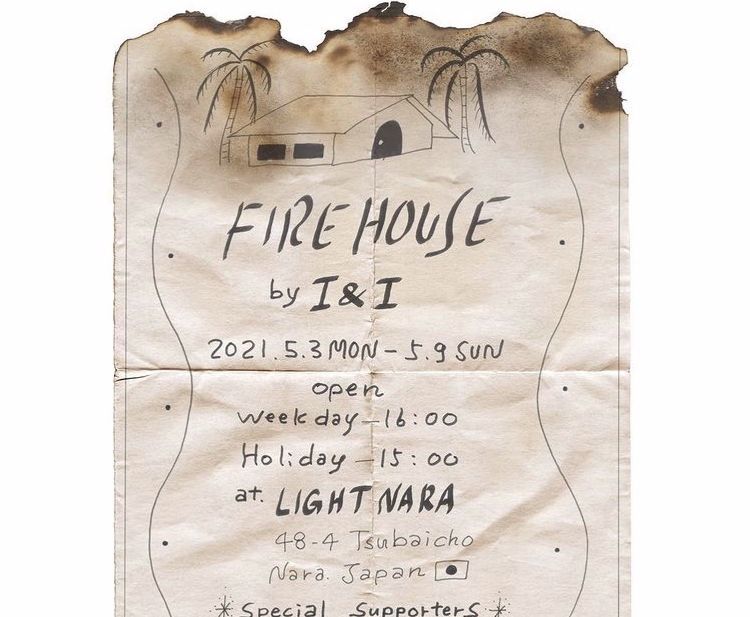 FIRE HOUSE
by I & I
2021.5.3 MON - 5.9 SUN
open
Weekday - 16:00
Holiday - 15:00
at. LIGHT NARA
48-4 Tsubaicho
Nara. Japan
Special Supporters